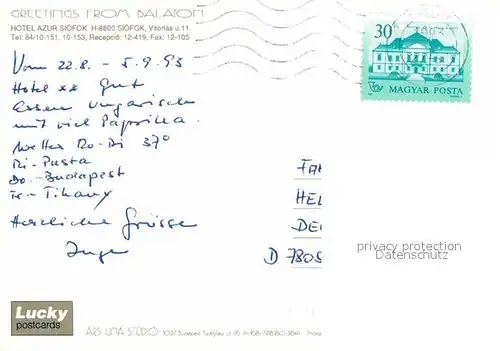 GREETINGS FROM BALATON
HOTEL AZUR SIÓFOK H-8600 SIÓFOK, Vitorlás u.11.
Tel: 84/10-151, 10-153, Recepció: 12-419, Fax: 12-105
30 Ft
MAGYAR POSTA
Vom 22.8. - 5.9.93
Hotel xx Gut
essen Ungarisch
mit viel Paprika.
Wetter Do-Di 37°
Di - Pusta
Do. - Budapest
Fr - Tihany
Herzliche Grüsse
Inge
HEL
DE
D 7805
privacy protection
Datenschutz
Lucky
postcards
ARS UNA STÚDIÓ 1037 Budapest